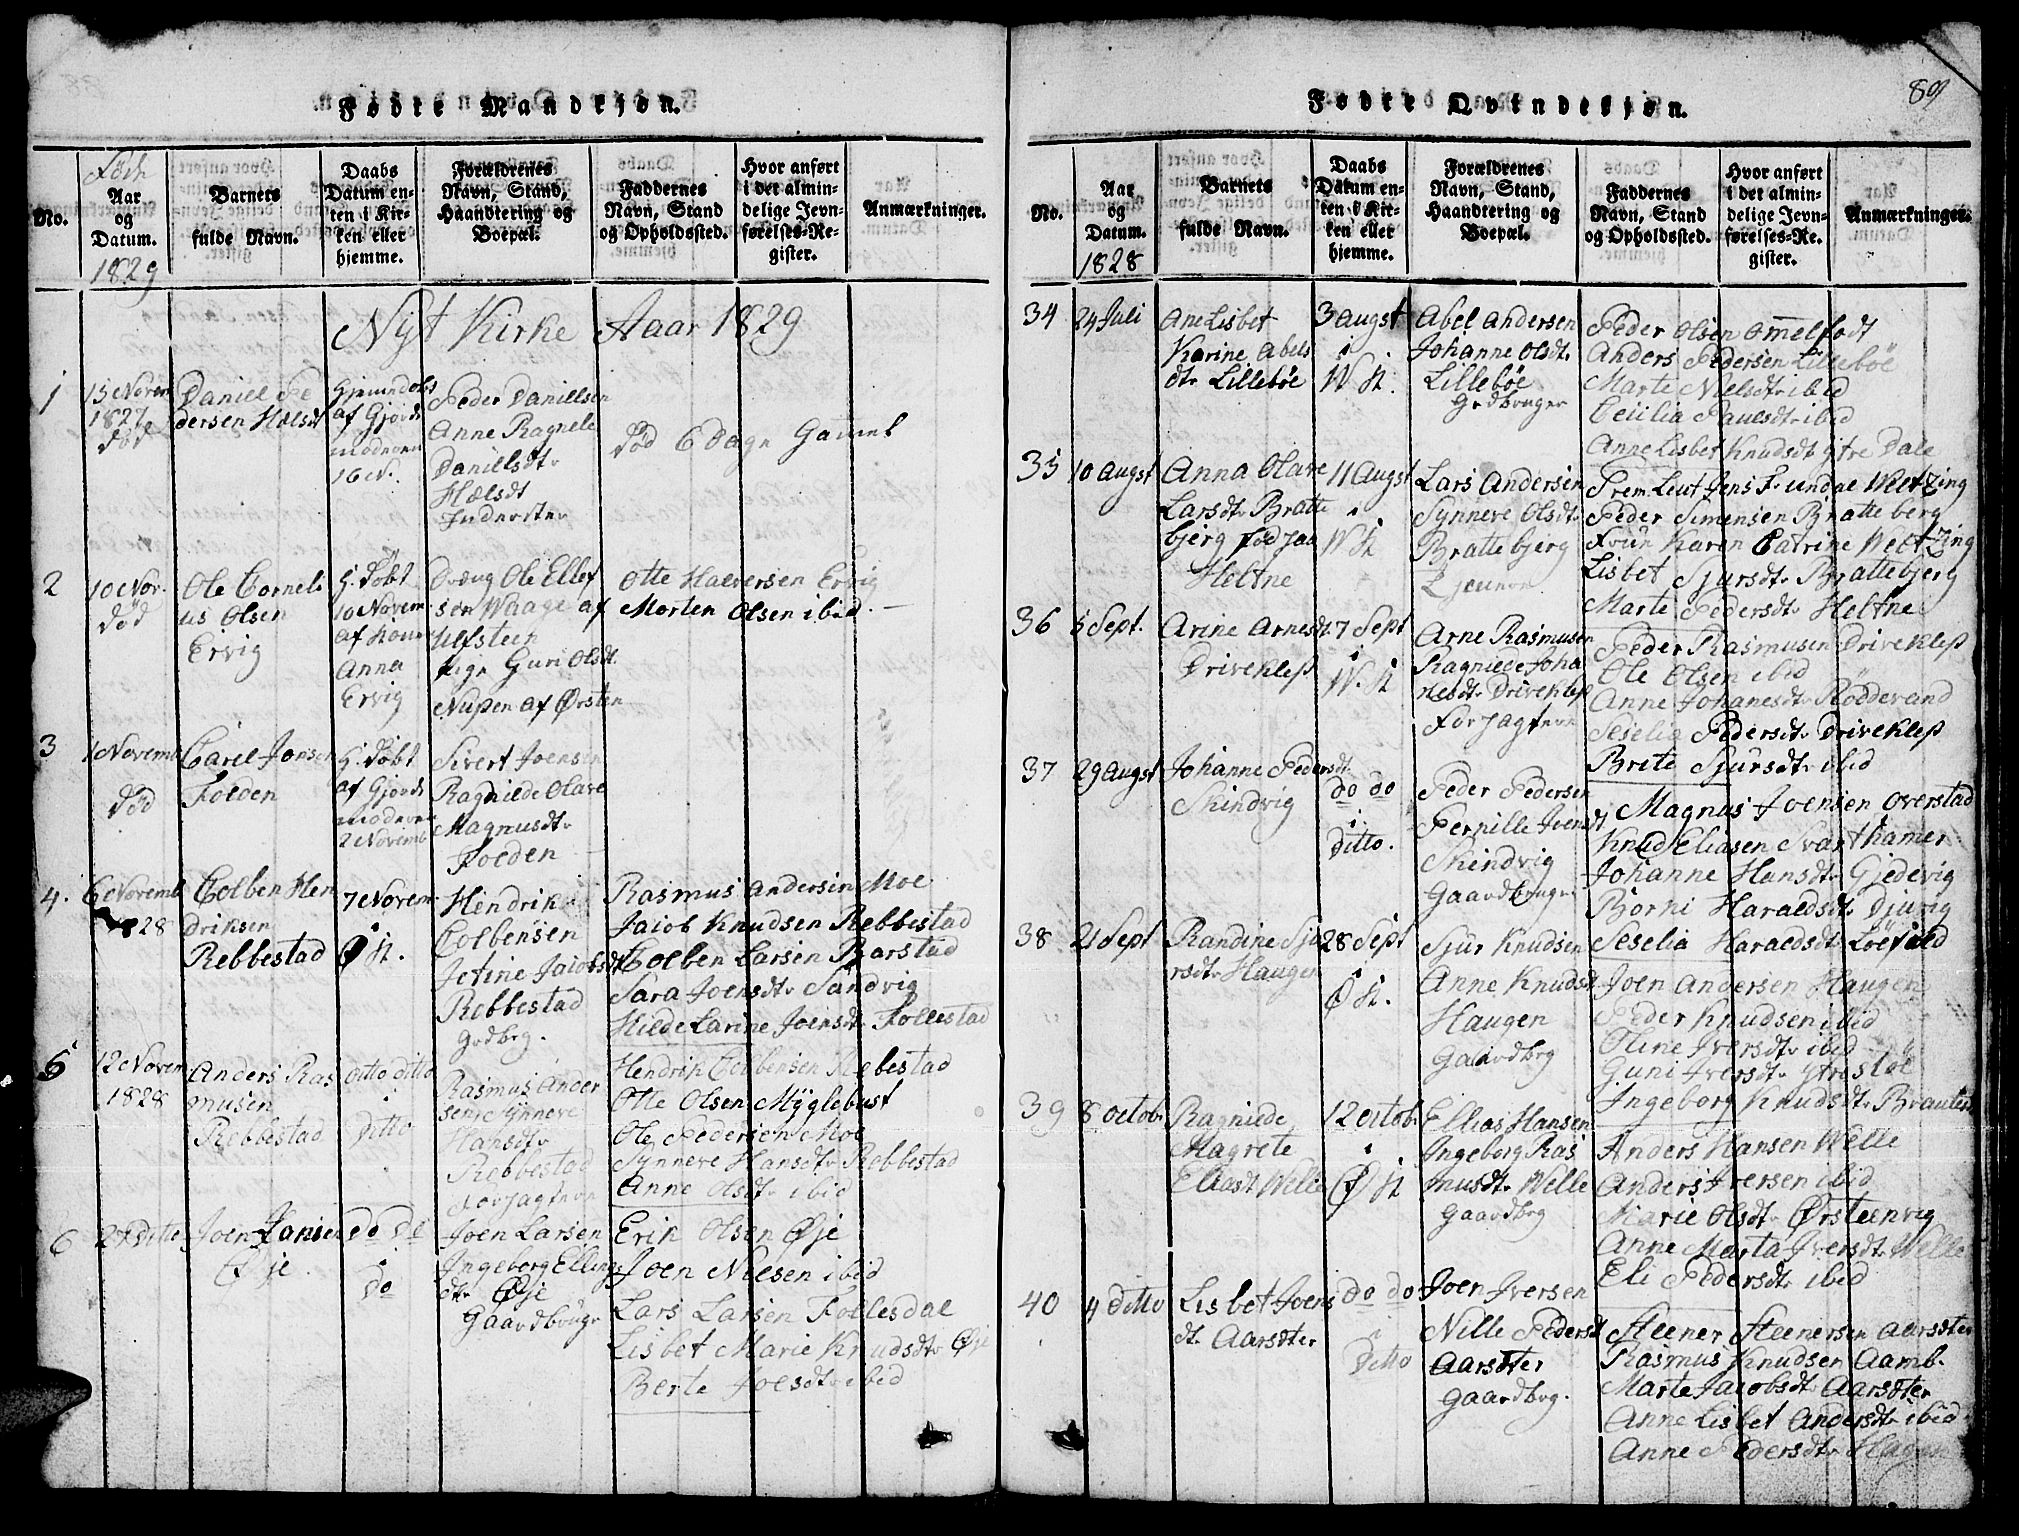 Fødte Mandkjøn.
No.
Aar
og
Datum.
1829
Barnets
fulde Navn.
Daabs
Datum en-
ten i Kir-
ken eller
hjemme.
Forældrenes
Navn, Stand,
Haandtering og
Boepæl.
Faddernes
Navn, Stand
og Opholdssted.
Hvor anført
i det almin-
delige Jevn-
førelses-Re-
gister.
Anmærkninger.
Nyt Kirke Aaar 1829
1
15 Novem
1827
død
Daniel Pe
dersen Hælsdt
af Gjords
moderen
16 N.
Peder Daniellsen
Anne Ragnele
Daniellsdtr
Hælsdt
Inderster
død 6 Dage Gamel
2
10 Nov.
død
Ole Cornels
us Olsen
Ervig
H. døbt
10 Novem
af Kone
Anna
Ervig
Dræng Ole Ellef
sen Waage af
Ulfsteen
Pige Guri Olsdt
Nupen af Ørsten
Otte Halversen Ervig
Morten Olsen ibid.
3
1 Novemb
død
Carel Jonsen
Folden
H. døbt
af Gjords
moderen
2 Novemb
Sivert Joensen
Ragnilde Olave
Magnusdtr
Folden
4.
6 Novemb
1828
Colben Hen
driksen
Rebbestad
7 Novem
i
Ø K.
Hendrik
Colbensen
Jetine Jacobsdt
Rebbestad
Grdbrg.
Rasmus Andersen Moe
Jacob Knudsen Rebbestad
Colben Larsen Barstad
Sara Joensdtr Sandvig
Hilde Larine Joensdtr Follestad
5
12 Novem
1828
Anders Ras
musen
Rebbestad
ditto ditto
i
ditto
Rasmus Ander
sen Synneve
Hansdtr
Rebbestad
Forsagtere
Hendrik Colbensen Rebestad
Otte Olsen Myglebust
Ole Pedersen Moe
Synneve Hansdtr Rebbestad
Anne Olsdtr ibid
6
27 Ditto
Joen Jansen
Øje
do do
i
do
Joen Larsen
Ingeborg Ellings
dtr Øje
Gaardbruger
Erik Olsen Øje
Joen Nilsen ibid
Lars Larsen Follesdal
Lisbet Marie Knudsdtr Øje
Berte Joesdtr ibid
89
Fødte Qvindekjøn.
No.
Aar
og
Datum.
1828
Barnets
fulde Navn.
Daabs
Datum en-
ten i Kir-
ken eller
hjemme.
Forældrenes
Navn, Stand,
Haandtering og
Boepæl.
Faddernes
Navn, Stand
og Opholdssted.
Hvor anført
i det almin-
delige Jevn-
førelses-Re-
gister.
Anmærkninger.
34
24 Juli
Ane Lisbet
Karine Abels
dtr Lillebøe
3 Augst
i
W K.
Abel Andersen
Johanne Olsdtr
Lillebøe
Grdbruger
Peder Olsen Ommelfodt
Anders Pedersen Lillebøe
Marte Nielsdtr ibid
Cecilia Paulsdtr ibid
Anne Lisbet Knudsdt ytre Dale
35
10 Augst
Anna Olave
Larsdtr Bratte
bjerg fød paa
Holtne
11 Augst
i
W K
Lars Andersen
Synneve Olsdtr
Brattebjerg
Prem Leut Jens F. undal Weltzing
Peder Simensen Bratteberg
Frun Karen Catrine Weltzing
Lisbet Sjursdtr Brattebjerg
Marte Pedersdtr Holtne
36
5 Sept.
Arine Arnesdt
Driveklep
7 Sept
i
W. K
Arne Rasmusen
Ragnilde Joha
nesdtr Driveklep
Forsagtere
Peder Rasmusen Driveklep
Ole Olsen ibid
Anne Johanesdtr Røddevand
Seselia Pedersdtr Driveklep
Brete Sjursdtr ibid
37
29 Augst
Johanne Pedersdt
Skindvig
do do
i
Ditto.
Peder Pedersen
Pernille Joensdt
Skindvig
Gaardbruger
Magnus Joensen Overstad
Knud Eliasen Svarthamer
Johanne Hansdtr Gjedevig
Bjorni Haraldsdtr Djuvig
Seselia Haraldsdtr Løefald
38
21 Sept
Randine Sju
rsdtr Haugen
28 Sept
i
Ø K.
Sjur Knudsen
Anne Knudsdt
Haugen
Gaardbrg
Joen Andersen Haugen
Peder Knudsen ibid
Oline Iversdtr ibid
Guni Iversdtr ytrestøl
Ingeborg Knudsdtr Brautes
39
8 Octob.
Ragnilde
Magrete
Eliasdt Welle
12 Octob.
i
Ø K
Ellias Hansen
Ingeborg Ras
musdtr Welle
Gaardbrg
Anders Hansen Welle
Anders Iversen ibid
Marie Olsdtr Ørsteenvig
Anne Marta Iversdtr Welle
Eli Pedersdtr ibid
40
4 Ditto
Lisbet Joens
dt. Aarsdter
do do
i
Ditto
Joen Iversen
Nille Pedersdt
Aarsdter
Gaardbrg.
Steener Steenersen Aarsdter
Rasmus Knudsen Aamb.
Marte Jacobsdtr Aarsdter
Anne Lisbet Andersdtr ibid
Anne Pedersdtr Hagen